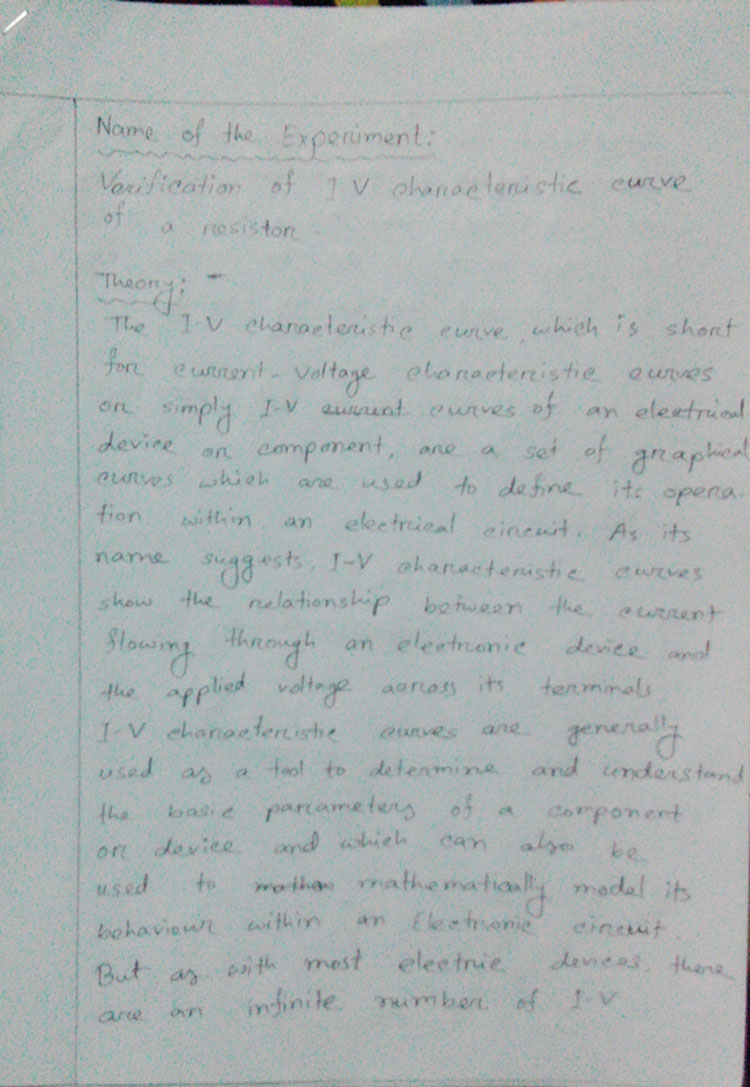 Name of the Experiment:
Verification of I V characteristic curve
of a resistor.
Theory: -
The I-V characteristic curve, which is short
for current-Voltage characteristic curves
or simply I-V current curves of an electrical
device or component, are a set of graphical
curves which are used to define its opera-
tion within an electrical circuit. As its
name suggests, I-V characteristic curves
show the relationship between the current
flowing through an electronic device and
the applied voltage across its terminals
I-V characteristic curves are generally
used as a tool to determine and understand
the basic parameters of a component
or device and which can also be
used to mathem mathematically model its
behaviour within an Electronic circuit.
But as with most electric devices there
are an infinite number of I-V